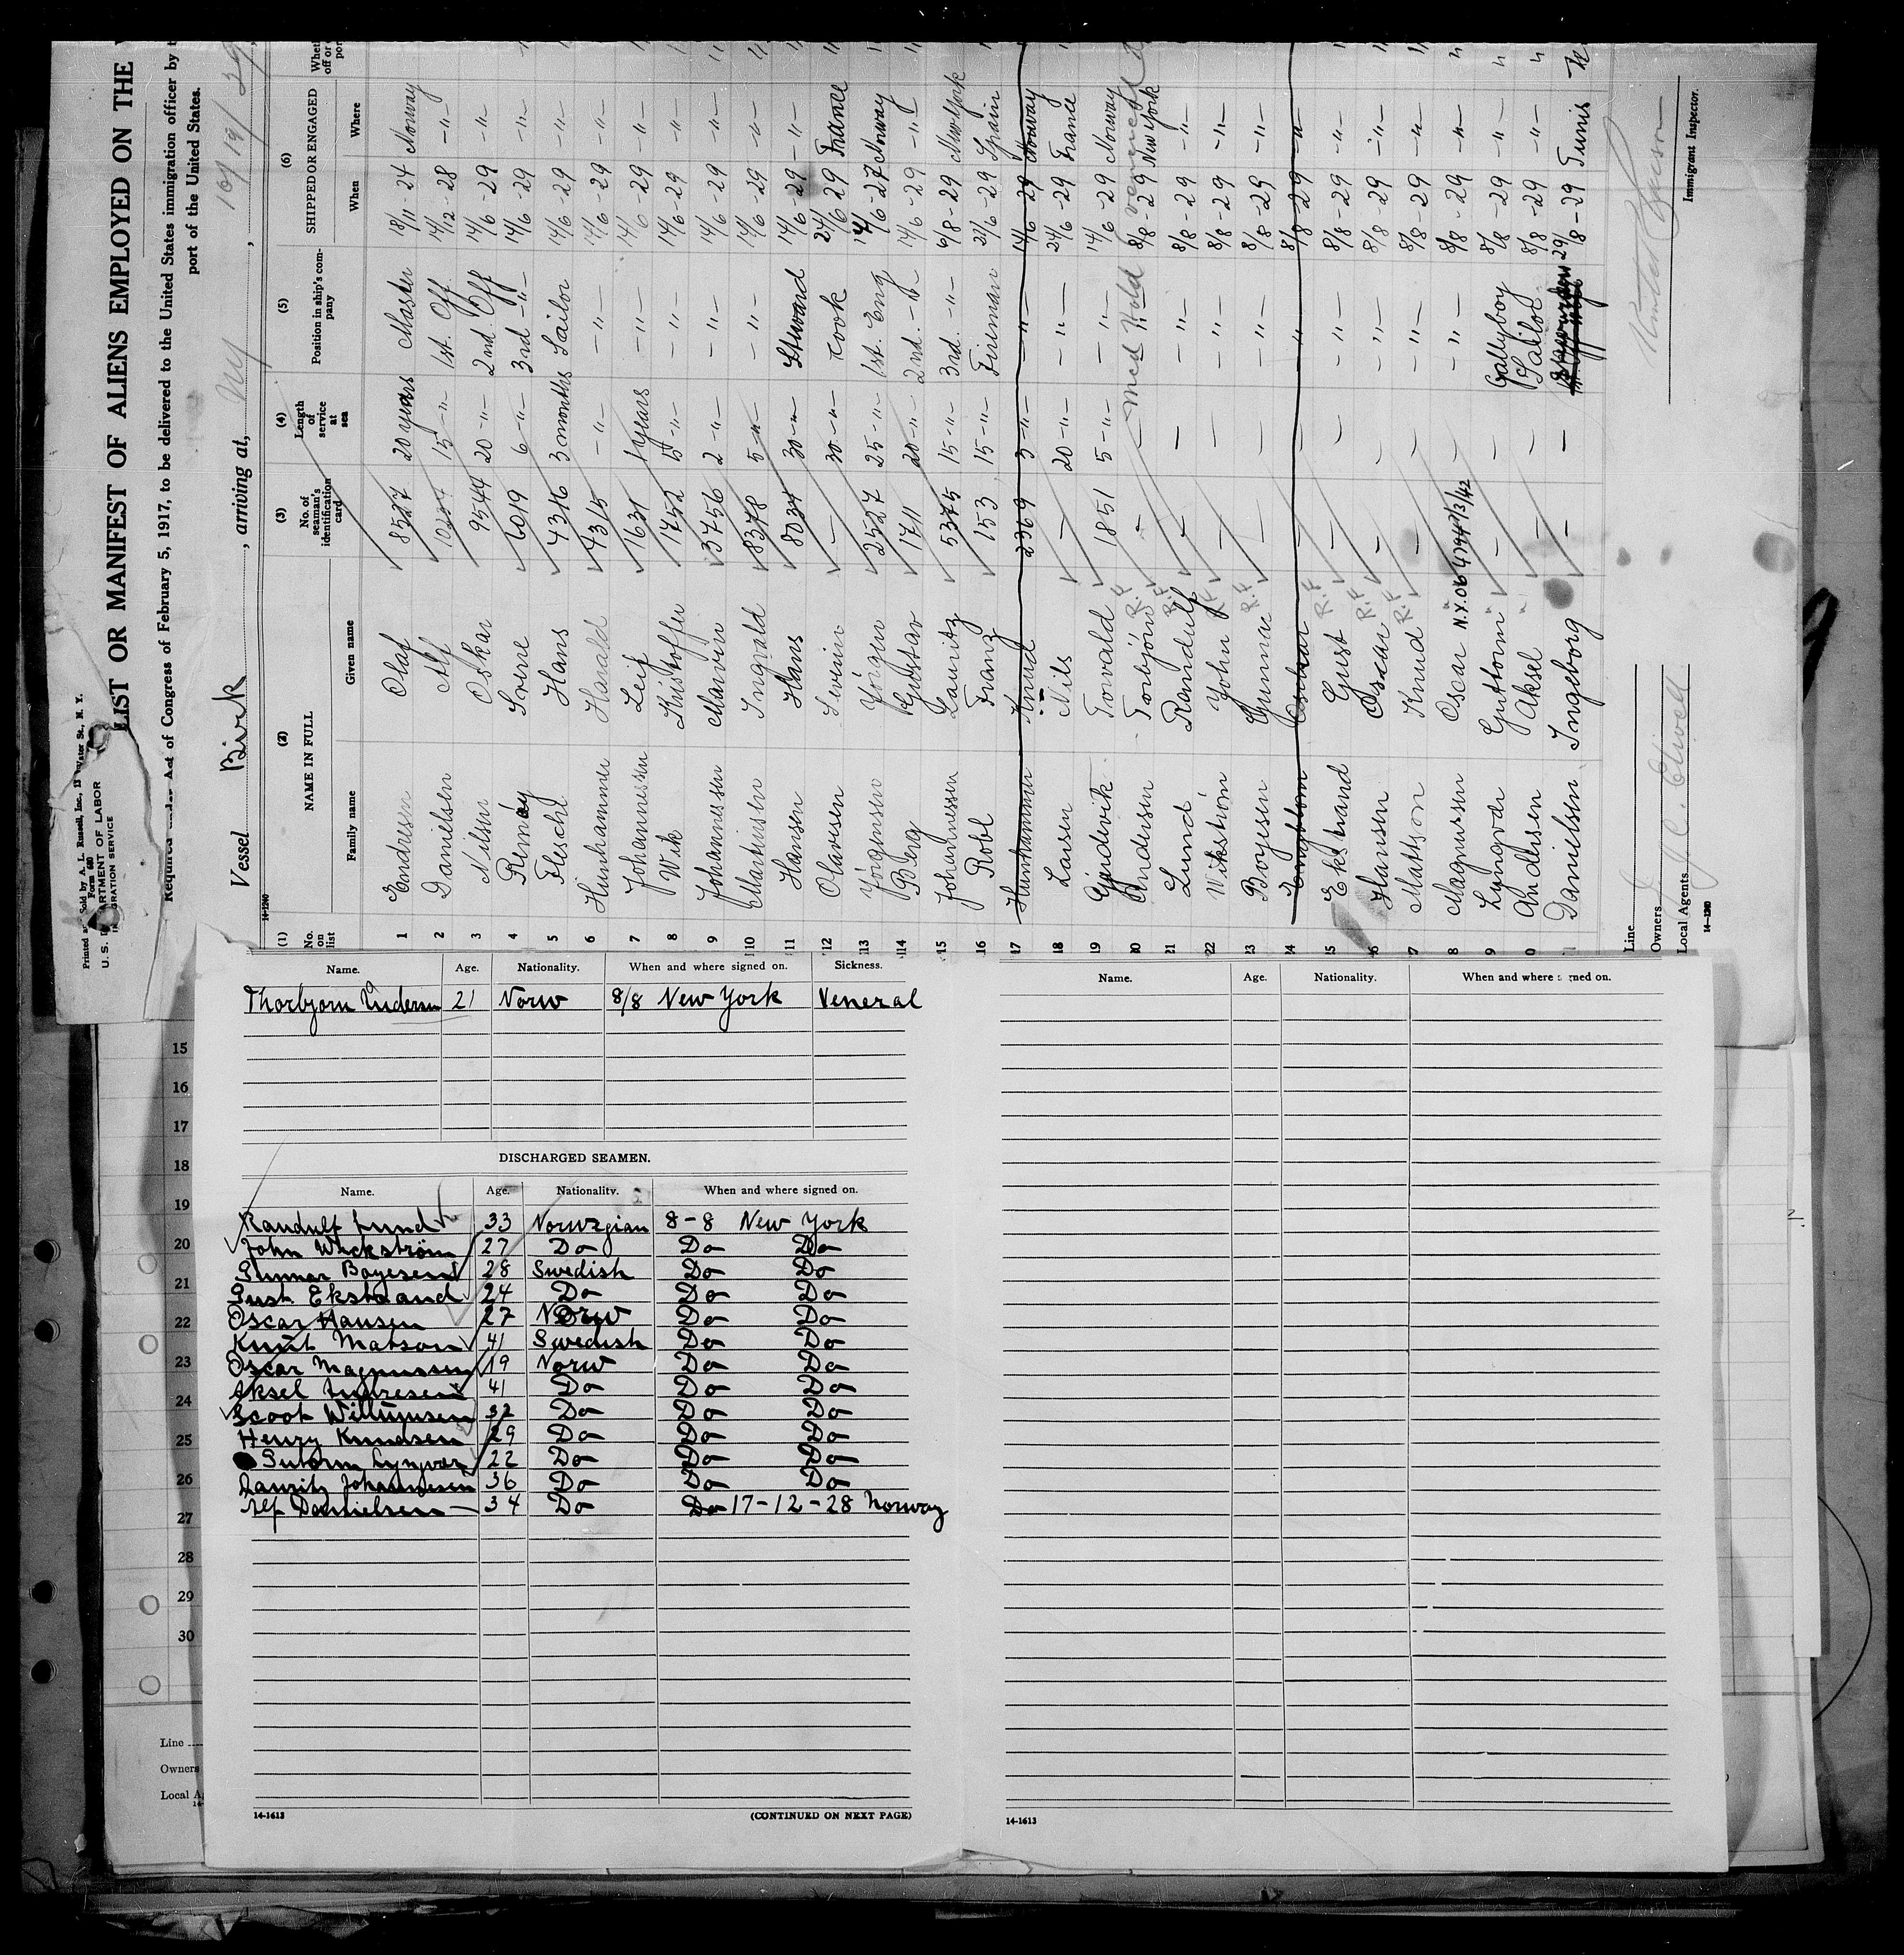 Printed and Sold by A. L. Russell, Inc., 13 Water St., N. Y.
Form 680
U. S. DEPARTMENT OF LABOR
IMMIGRATION SERVICE
LIST OR MANIFEST OF ALIENS EMPLOYED ON THE
Required under Act of Congress of February 5, 1917, to be delivered to the United States immigration officer by
port of the United States.
Vessel Birk, arriving at, NY, 10/19/29
14-1240
(1) (2) (3) (4) (5) (6)
No. on list NAME IN FULL No. of seaman's identification card Length of service at sea Position in ship's company SHIPPED OR ENGAGED
Family name Given name When Where
1 Endresen Olaf 8527 20 years Master 18/11-24 Norway
2 Danielsen Alf 15 -"- 1st. Off 14/12-28 -"-
3 Nilsen Oskar 9544 20 -"- 2nd. Off 14/6-29 -"-
4 Remøy Sverre 6019 6 -"- 3rd -"- 14/6-29 -"-
5 Flesche Hans 4316 3 months Sailor 14/6-29 -"-
6 Hunhammer Harald 4315 -"- -"- 14/6-29 -"-
7 Johannessen Leif 1631 1 years -"- 14/6-29 -"-
8 Wik Kristoffer 1752 15 -"- -"- 14/6-29 -"-
9 Johannessen Marvin 3756 2 -"- -"- 14/6-29 -"-
10 Martinsen Ingvald 8378 5 -"- -"- 14/6-29 -"-
11 Hansen Hans 8034 30 -"- Stuward 14/6-29 -"-
12 Olavesen Severin — 30 -"- Cook 24/6-29 France
13 Jörgensen Jörgen 2527 25 -"- 1st. Eng 14/6-27 Norway
14 Berg Gustav 1711 20 -"- 2nd. -"- 14/6-29 -"-
15 Johannessen Lauritz 5375 15 -"- 3rd. -"- 6/8-29 New York
16 Robl Franz 153 15 -"- Fireman 27/6-29 Spain
17 Hunhammer Knud 2369 3 -"- -"- 14/6-29 Norway
18 Larsen Nils — 20 -"- -"- 24/6-29 France
19 Gjúdevik Torvald 1851 5 -"- -"- 14/6-29 Norway
20 Andersen Torbjörn R.F — — Med Hold venereal 8/8-29 New York
21 Lund Randulf R.F — — -"- 8/8-29 -"-
22 Wikström John R.F — — -"- 8/8-29 -"-
23 Boyesen Gunnar R.F — — -"- 8/8-29 -"-
24 Engblom — — -"- 8/8-29 -"-
25 Ekstrand Gust R.F — — -"- 8/8-29 -"-
6 Hansen Oscar R.F — — -"- 8/8-29 -"-
7 Mattson Knud R.F — — -"- 8/8-29 -"-
8 Magnussen Oscar N.Y. 06 — -"- 8/8-29 -"-
9 Lyngvar Guttorm — — Gallyboy 8/8-29 -"-
0 Andersen Aksel — — Sailor 8/8-29 -"-
1 Danielsen Ingeborg — — 29/8-29 Tunis
Line
Owners
Local Agents
14-1240
Immigrant Inspector.
Name. Age. Nationality. When and where signed on. Sickness.
Thorbjorn Andersen 21 Norw 8/8 New York Veneral
DISCHARGED SEAMEN.
Name. Age. Nationality. When and where signed on.
Randulf Lund 33 Norwegian 8-8 New York
John Wickström 27 Do Do Do
Gunnar Boyesen 28 Swedish Do Do
Gust. Ekstrand 24 Do Do Do
Oscar Hansen 27 Norw Do Do
Knut Matson 41 Swedish Do Do
Oscar Magnussen 19 Norw Do Do
Aksel Andresen 41 Do Do Do
Scoot Willumsen 32 Do Do Do
Henry Knudsen 29 Do Do Do
Gutorm Lyngvar 22 Do Do Do
Lauritz Johannesen 36 Do Do Do
Alf Danielsen 34 Do Do 17-12-28 Norway
14-1613 (CONTINUED ON NEXT PAGE)
Name. Age. Nationality. When and where signed on.
14-1613
15
16
17
18
19
20
21
22
23
24
25
26
27
28
29
30
Line
Owners
Local A